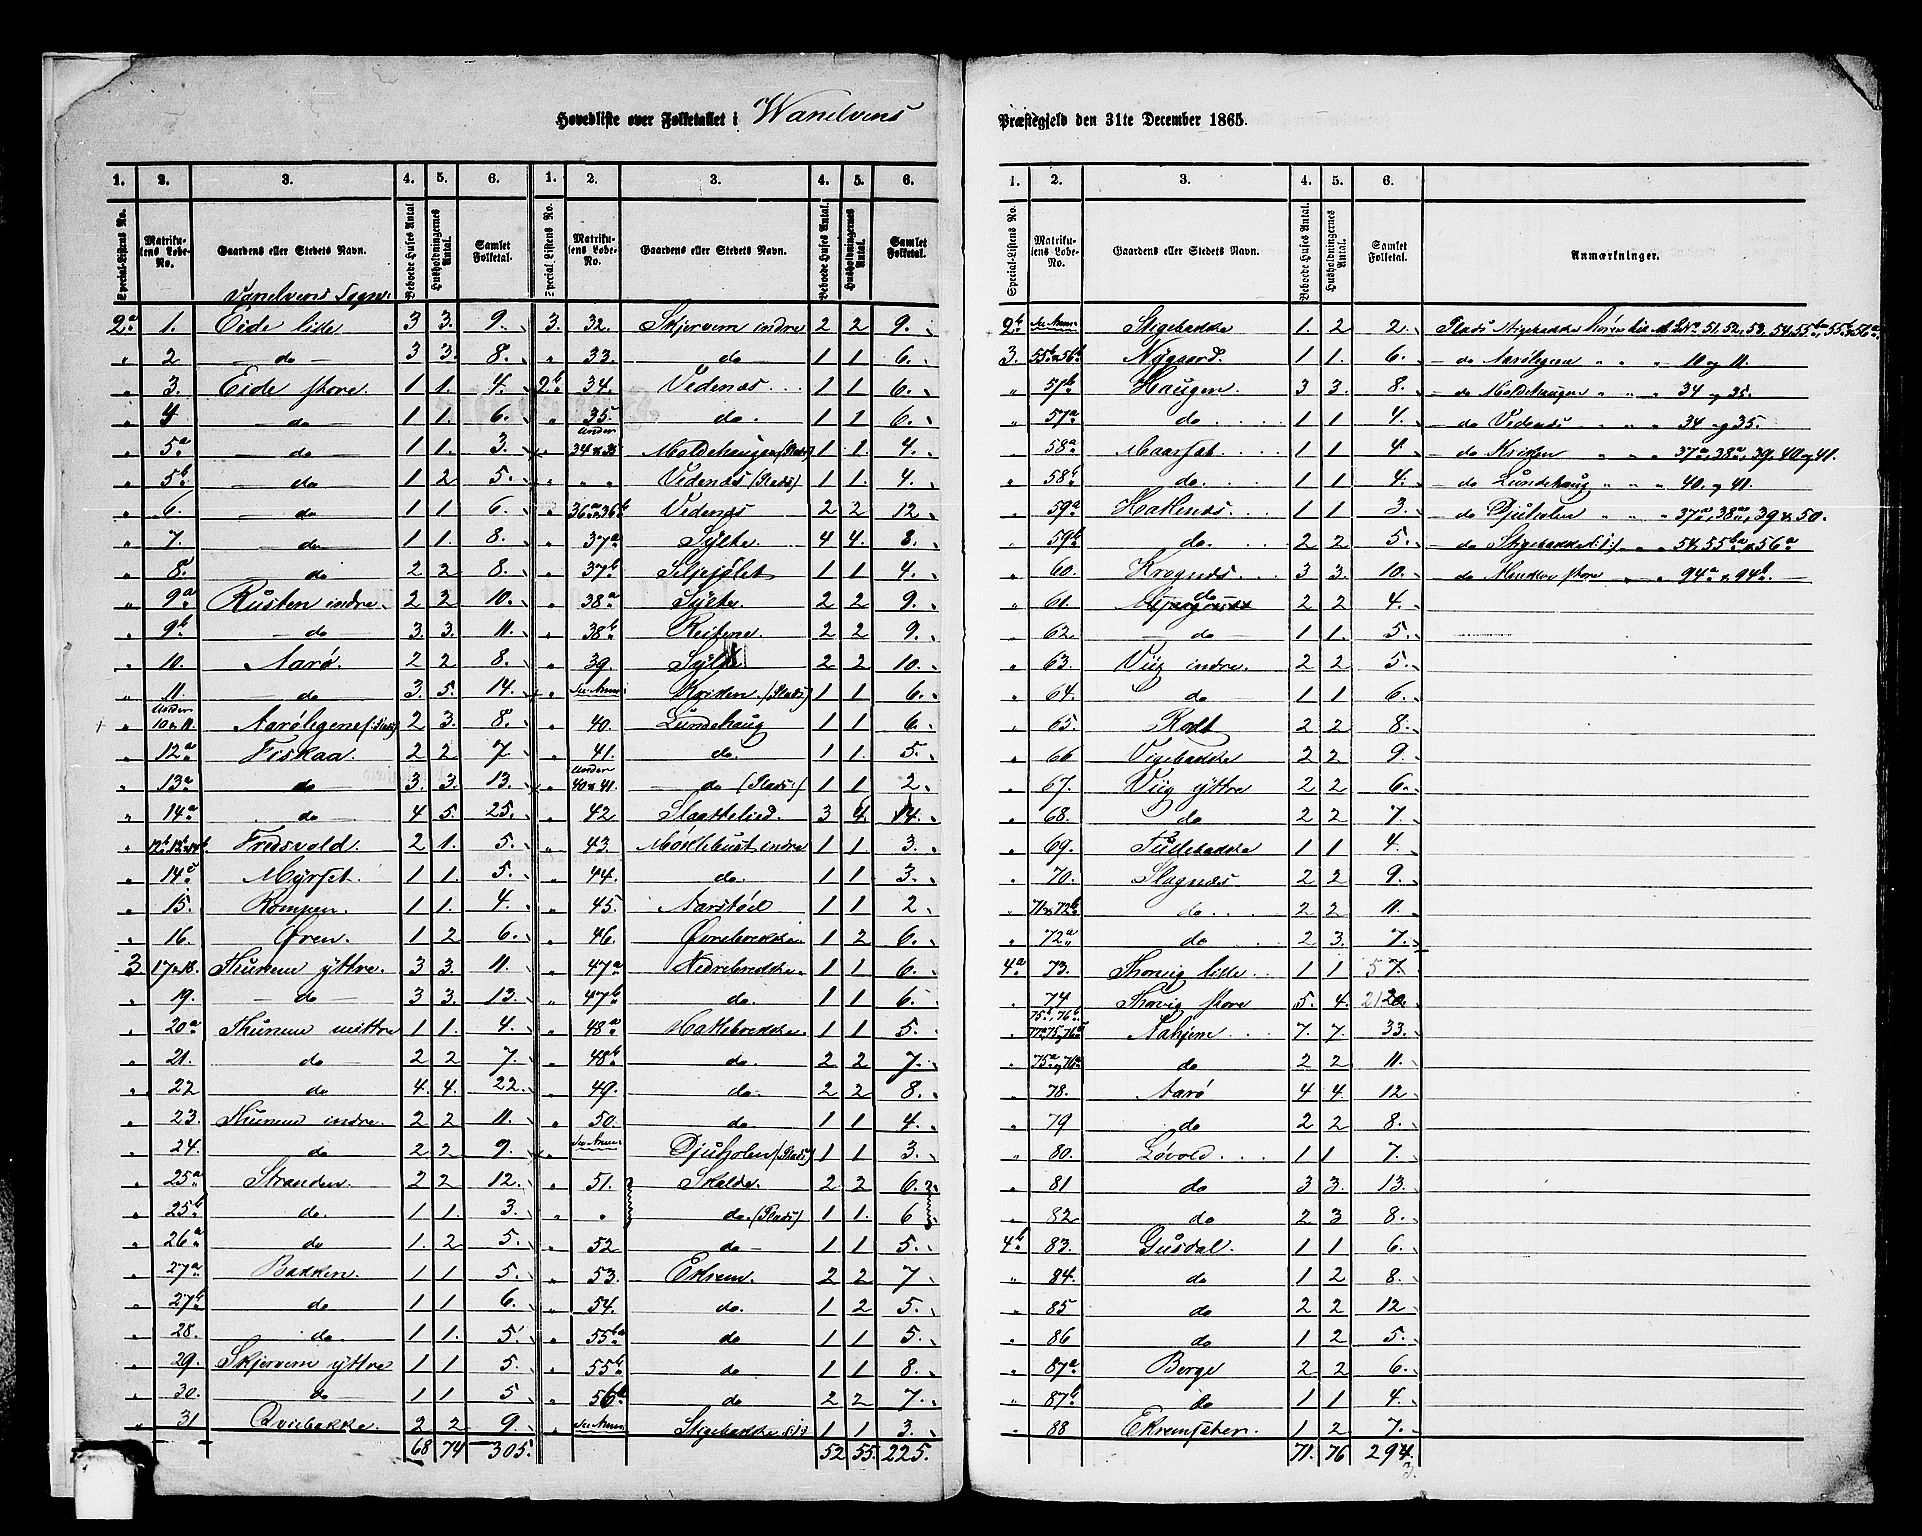 Hovedliste over Folketallet i Wanelvens
Præstegjeld den 31te December 1865.
1. 2. 3. 4. 5. 6. 1. 2. 3. 4. 5. 6.
Special-Listens No. Matrikulens Løbe-No. Gaardens eller Stedets Navn. Beboede Huses Antal Husholdningernes Antal. Samlet Folketal. Special Listens No. Matrikulens Løbe-No. Gaardens eller Stedets Navn. Beboede Huses Antal. Husholdningernes Antal. Samlet Folketal.
Vanelvens Sogn:
2a 1. Eide lille 3 3. 9.
" 2 do 3 3. 8.
" 3. Eide store 1 1. 4.
" 4 do 1 1. 6.
" 5a do 1 1. 3.
" 5b do 1 2 5.
" 6. do 1 1. 6.
" 7. do 1 1. 8.
" 8. do 2 2 8.
" 9a Rusten indre 2 2 10.
" 9b do 3. 3. 11.
" 10. Aarø. 2 2 8.
" 11. do 3. 5. 14.
" Under 10 & 11. Aarølegene (Plads) 2 3. 8.
" 12a Fiskaa. 2 2 7
" 13a do 3. 3. 13.
" 14a do 4 5. 25.
" Fredsvold 2 1. 5.
" 14c Myrset 1 1. 5.
" 15. Rompen. 1 1. 4.
" 16. Øren. 1 2 6.
3 17 & 18. Thunem ÿttre. 3 3. 11.
" 19. do 3 3. 13.
" 20a Thunem mittre 1 1. 4.
" 21. do 2 2 7.
" 22 do 4. 4. 22.
" 23. Thunem indre. 2 2 11.
" 24. do 2 2 9.
" 25a Stranden. 2 2 12.
" 25b do. 1 1. 3.
" 26a do 1. 2 5.
" 27a Bakken. 1 1 5.
" 27b do 1 1 6.
" 28. do. 1 1. 5.
" 29. Skjervem ÿttre 1 1 5.
" 30. do 1 1 5
" 31 Qviebakke. 2 2 9.
68 74 305.
3. 32. Skjervem indre 2 2 9.
" 33. do 1 1 6.
2b 34. Vedenæs 1 1 6.
" 35 do. 1 1 6.
" Under 34 & 35 Moldehaugen (Plads) 1 1. 4.
" " " Vedenæs (Plads) 1 1. 4.
" 36a & 36b Vedenæs 2 2 12
" 37a Sÿlte. 4 4. 8.
" 37b Seljesølet 1 1 4.
" 38a Sÿlte. 2 2 9.
" 38b Reitene. 2 2 9.
" 39. Sÿlte 2 2 10.
" See Anm: Kriken. (Plads) 1 1 6.
" 40. Lundehaug 1 1 6.
" 41. do. 1 1. 5.
" Under 40 & 41. do (Plads) 1 1 2.
" 42 Slaattelied. 3 4. 14.
" 43. Møklebust indre 1 1 3.
" 44. do. 1 1 3.
" 45. Aarstøil 1 1 2
" 46. Øvrebrekke. 1 2 6.
" 47a Nedrebrekke. 1 1 6.
" 47b do. 1 1 6.
" 48a Matlebrekke. 1 1 5.
" 48b do. 2 2 7.
" 49. do. 2 2 8.
" 50. do 1 1 4.
" See Anm: Djuholen (Plads) 1 1 3.
" 51. Skelde. 2 2 6.
" " do. (Plads) 1 1. 6
" 52 do 1 1 5.
" 53. Ekrem. 2 2 7
" 54. do. 1 2 5.
" 55ba do 1 1 5.
" 55b do 1 1 8.
" 56a do 2 2 7.
" See Anm: Stigebakke 1 1 3.
52 55. 225.
1. 2. 3. 4. 5. 6.
Special-Listens No. Matrikulens Løbe-No. Gaardens eller Stedets Navn. Beboede Huses Antal. Husholdningernes Antal. Samlet Folketal. Anmærkninger.
2b See Anm: Stigebakke 1. 2 2. Plads Stigebakke 51, 52, 53, 54, 55
3. 55b & 56b Nÿgaard. 1 1. 6. do Aarølegene " " " 10 og 11.
" 57b Haugen 3 3. 8. do Moldehaugen " " " 34 og 35.
" 57a do 1 1. 4. do Vedenæs " " " 34 og 35.
" 58a Maarsat 1 1 4. do Kriken " " " 37a, 38a, 39, 40 og 41.
" 58b do. 1 1 4. do Lundehaug " " " 40. og 41.
" 59a Hakenæs. 1 1 3. do Djuholen " " " 37a, 38a, 39 & 50.
" 59b do. 2 2 5. do Stigebakke " " 54, 55ba & 56a
" 60. Kragnæs 3 3. 10. do store " " " 94a & 94b.
" 61. do 2 2 4.
" 62 do 1 1. 5.
" 63. Viig indre. 2 2 5.
" 64. do 1 1 6.
" 65. Rodt 2 2 8.
" 66 Vigebakke 2 2 9.
" 67. Viig ÿttre 2 2 6.
" 68. do 2 2 7.
" 69. Tuebakke 1 1 4.
" 70. Slagnæs. 2 2 9.
" 71 & 72b do. 2 2 11.
" 72a do 2 3. 7.
4a 73. Thorvig lille 1 1 57.
" 74 Thorvig store 5. 4. 2120.
" 75b, 76b Aaheim 7. 7. 33.
" 75a og 76a do 2 2 11.
" 78. Aarø 4 4. 12
" 79 do 2 2 8.
" 80. Løvold 1 1 7.
" 81 do 3 3. 13.
" 82 do 2 3 8.
4b 83. Gusdal. 1 1 6.
" 84. do 1 2 8.
" 85 do 2 2 12
" 86 do 1 2 5.
" 87a Berge 2 2 6.
" 87b do 1 1 4.
" 88 Ekremsæter. 1 2 7.
71. 76 294.
3.